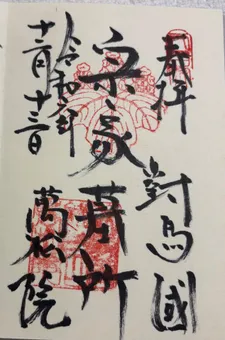 奉拝
對馬國
宗家墓所
令和年
十二月十三日
萬松院